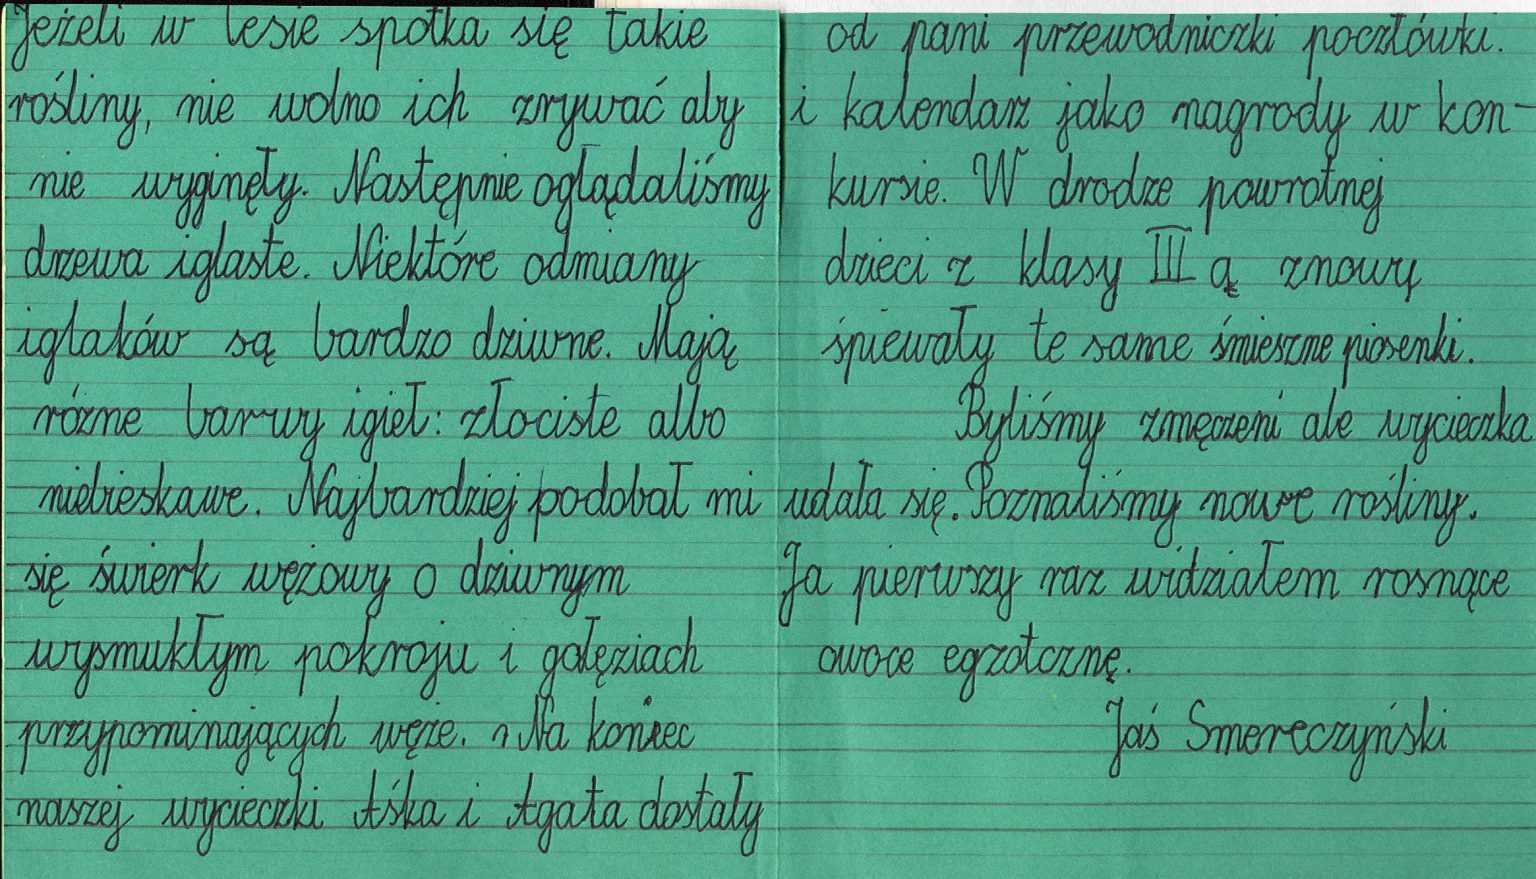 Jeżeli w lesie spotka się takie
rośliny, nie wolno ich zrywać aby
nie wyginęły. Następnie oglądaliśmy
drzewa iglaste. Niektóre odmiany
iglaków są bardzo dziwne. Mają
różne barwy igieł: złociste albo
niebieskawe. Najbardziej podobał mi
się świerk wężowy o dziwnym
wysmukłym pokroju i gałęziach
przypominających węże. Na koniec
naszej wycieczki Aśka i Agata dostały
od pani przewodniczki pocztówki.
i kalendarz jako nagrody w kon-
kursie. W drodze powrotnej
dzieci z klasy III a znowu
śpiewały te same śmieszne piosenki.
Byliśmy zmęczeni ale wycieczka
udała się. Poznaliśmy nowe rośliny.
Ja pierwszy raz widziałem rosnące
owoce egzotcznę.
Jaś Smereczyński